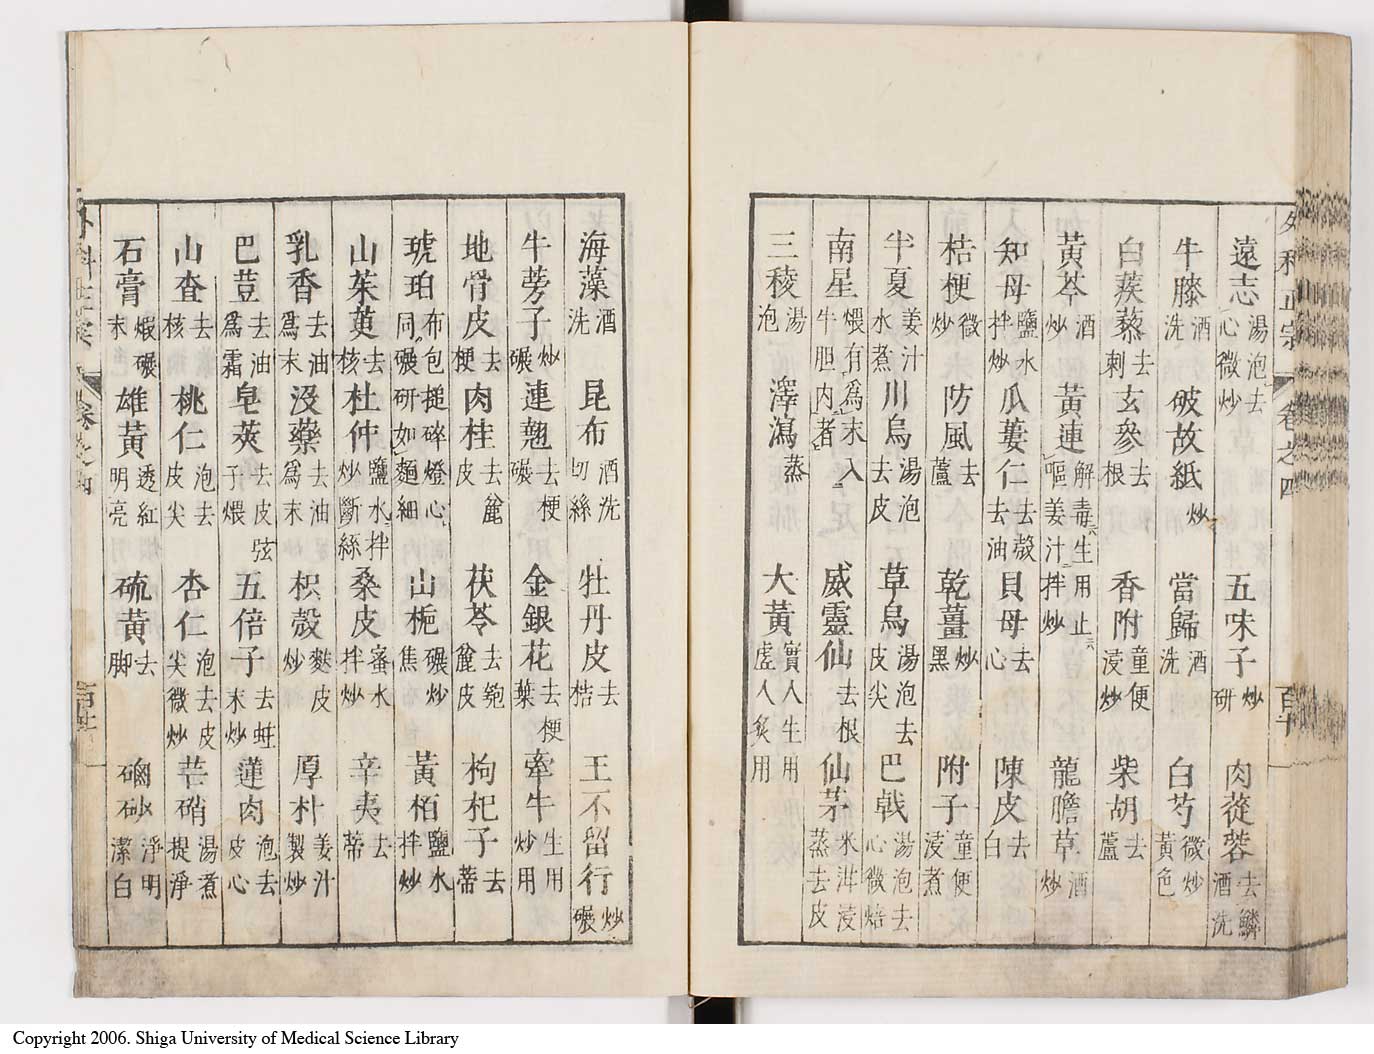 外科正宗 卷之四 百十
遠志湯泡去心微炒 五味子炒研 肉蓯蓉去鱗酒洗
牛膝酒洗 破故紙炒 當歸酒洗 白芍微炒黃色
白蒺藜去刺 玄參去根 香附童便浸炒 柴胡去蘆
黃芩酒炒 黃連解毒生用止嘔姜汁拌炒 龍膽草酒炒
知母鹽水拌炒 瓜蔞仁去殼去油 貝母去心 陳皮去白
桔梗微炒 防風去蘆 乾薑炒黑 附子童便浸煮
半夏姜汁水煮 川烏湯泡去皮 草烏湯泡去皮尖 巴戟湯泡去心微焙
南星煨有為末入牛胆内者 威靈仙去根 仙茅米泔浸蒸去皮
三稜湯泡 澤瀉蒸 大黃實人生用虛人炙用
海藻酒洗 昆布酒洗切絲 牡丹皮去梏 王不留行炒碾
牛蒡子炒碾 連翹去梗碾 金銀花去梗葉 牽牛生用炒用
地骨皮去梗 肉桂去麄皮 茯苓去麄皮 枸杞子去蒂
琥珀布包搥碎燈心同碾研如麵細 山梔碾炒焦 黃栢鹽水拌炒
山茱萸去核 杜仲鹽水拌炒斷絲 桑皮蜜水拌炒 辛夷去蒂
乳香去油為末 沒藥去油為末 枳殼麩皮炒 厚朴姜汁製炒
巴荳去油為霜 皂莢去皮弦子煨 五倍子去蛀末炒 蓮肉泡去皮心
山查去核 桃仁泡去皮尖 杏仁泡去皮尖微炒 芒硝湯煮提淨
石膏煆碾末 雄黃透紅明亮 硫黃去脚 硇砂淨明潔白